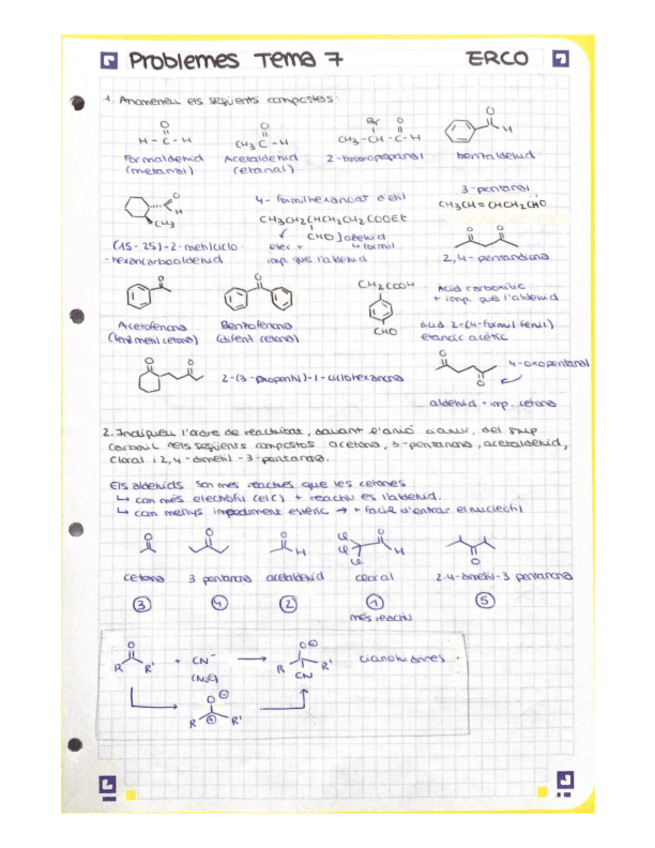 Problemes Tema 7 ERCO
1. Anomeneu els següents compostos:
H - C - H
O
CH3 C - H
O
CH3 - CH - C - H
Br O
O
H
Formaldehid
(metanal)
Acetaldehid
(etanal)
2-bromopropanal
benzaldehid
O
H
CH3
4- formilhexanoat d'etil
CH3CH2CHCH2CH2COOEt
CHO] aldehid
4 formil
imp. que l'aldehid
3-pentenal
CH3CH=CHCH2CHO
(1S-2S)-2-metilciclo-
-hexancarboaldehid
2,4-pentandiona
Acetofenona
(fenil metil cetona)
Benzofenona
(difenil cetona)
CH2COOH
CHO
Àcid carboxílic
+ imp. que l'aldehid
àcid 2-(4-formil fenil)
etanoic acètic
-1-ciclohexanona
4-oxopentanal
aldehid + imp. cetona
2. Indiqueu l'ordre de reactivitat, davant l'anió cianur, del grup
carbonil dels següents compostos: acetona, 3-pentanona, acetaldehid,
cloral i 2,4-dimetil-3-pentanona.
Els aldehids són més reactius que les cetones
↳ com més electròfil (el C) + reactiu és l'aldehid.
↳ com menys impediment estèric → + fàcil d'entrar el nucleòfil
cetona 3 pentanona acetaldehid cloral 2-4-dimetil-3 pentanona
3 4 2 1 5
més reactiu
R R' + CN⁻ → R R' CN cianohidrines
(Nu)
R R'